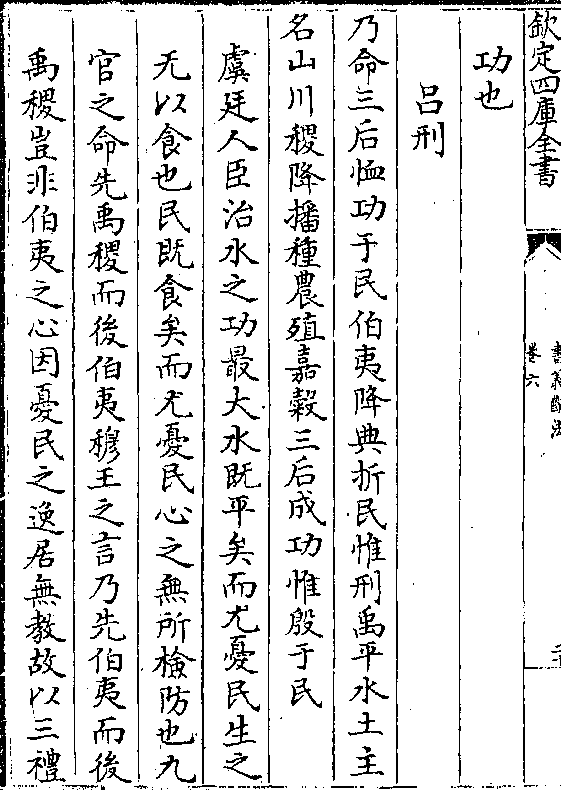 欽定四庫全書
書義斷法
卷六
二十
功也
呂刑
乃命三后恤功于民伯夷降典折民惟刑禹平水土主
名山川稷降播種農殖嘉榖三后成功惟殷于民
虞廷人臣治水之功最大水既平矣而尤憂民生之
无以食也民既食矣而尤憂民心之無所檢防也九
官之命先禹稷而後伯夷穆王之言乃先伯夷而後
禹稷豈非伯夷之心因憂民之逸居無教故以三禮